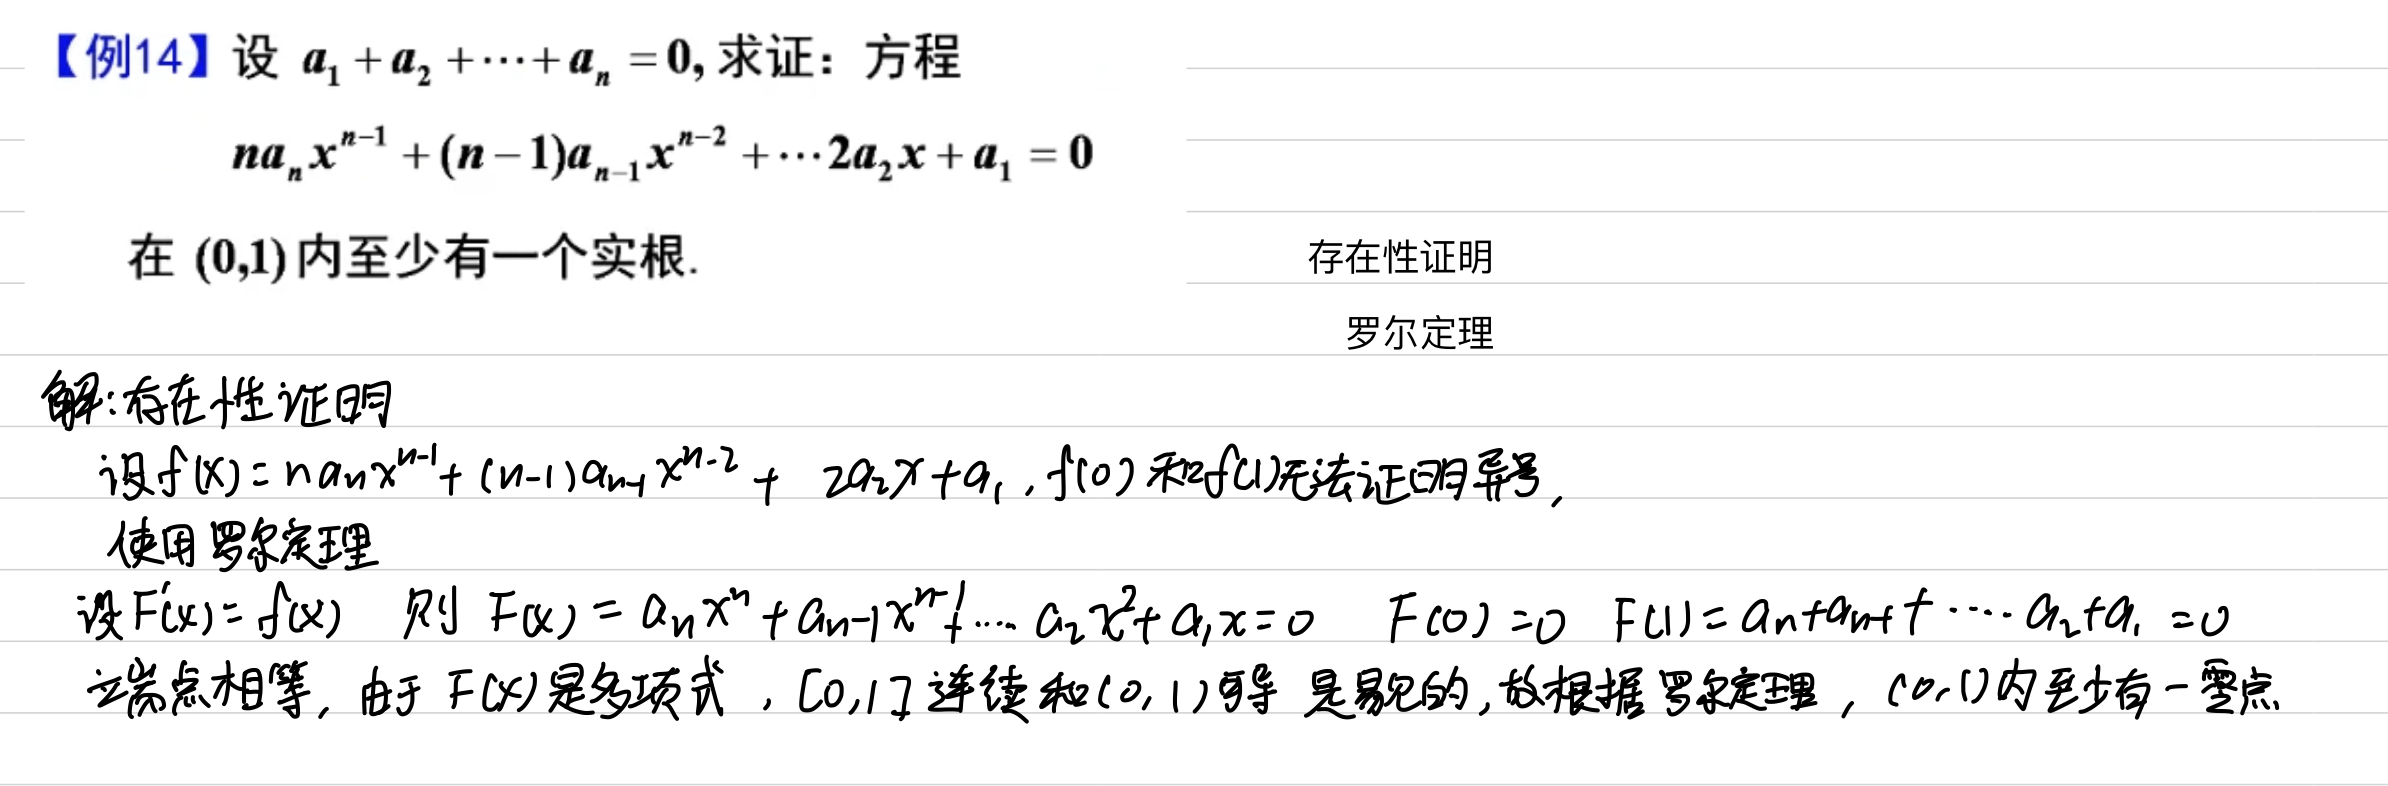 【例14】设 a₁ + a₂ + ⋯ + aₙ = 0, 求证：方程
naₙxⁿ⁻¹ + (n − 1)aₙ₋₁xⁿ⁻² + ⋯2a₂x + a₁ = 0
在 (0,1) 内至少有一个实根.
存在性证明
罗尔定理
解:存在性证明
设f(x) = naₙxⁿ⁻¹ + (n-1)aₙ₋₁xⁿ⁻² + 2a₂x + a₁, f(0)和f(1)无法证明异号,
使用罗尔定理
设F'(x) = f(x) 则 F(x) = aₙxⁿ + aₙ₋₁xⁿ⁻¹ + ⋯ a₂x² + a₁x = 0 F(0) = 0 F(1) = aₙ + aₙ₋₁ + ⋯ a₂ + a₁ = 0
端点相等, 由于 F(x) 是多项式, [0,1] 连续和(0,1)可导 是易见的, 故根据罗尔定理, (0,1)内至少有一零点